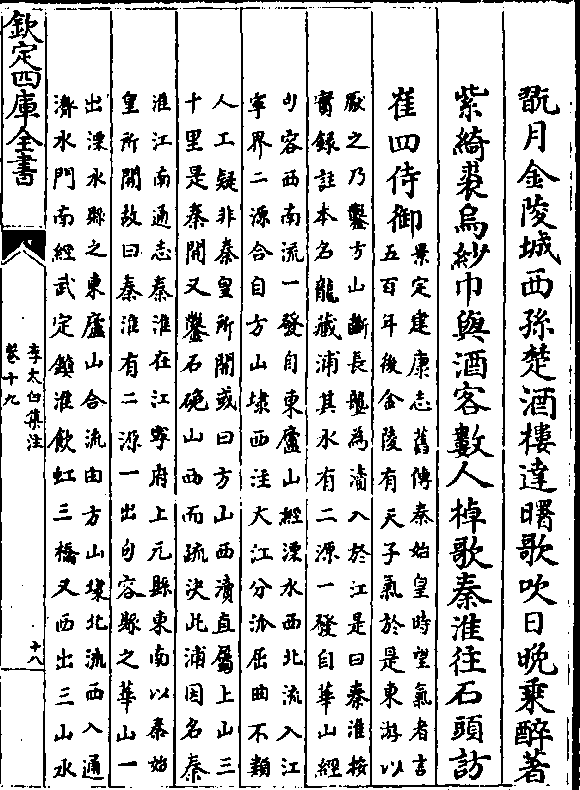 翫月金陵城西孫楚酒樓達曙歌吹日晚乘醉著
紫綺裘烏紗巾與酒客數人棹歌秦淮往石頭訪
崔四侍御
景定建康志舊傳秦始皇時望氣者言
五百年後金陵有天子氣於是東游以
厭之乃鑿方山斷長壟為瀆入於江是曰秦淮按
實錄註本名龍藏浦其水有二源一發自華山經
句容西南流一發自東廬山經溧水西北流入江
寧界二源合自方山埭西注大江分派屈曲不類
人工疑非秦皇所開或曰方山西瀆直屬土山三
十里是秦開又鑿石硊山西而疏決此浦因名秦
淮江南通志秦淮在江寧府上元縣東南以秦始
皇所開故曰秦淮有二源一出句容縣之華山一
出溧水縣之東廬山合流由方山埭北流西入通
濟水門南經武定鎮淮飲虹三橋又西出三山水
欽定四庫全書
李太白集注
卷十九
十八